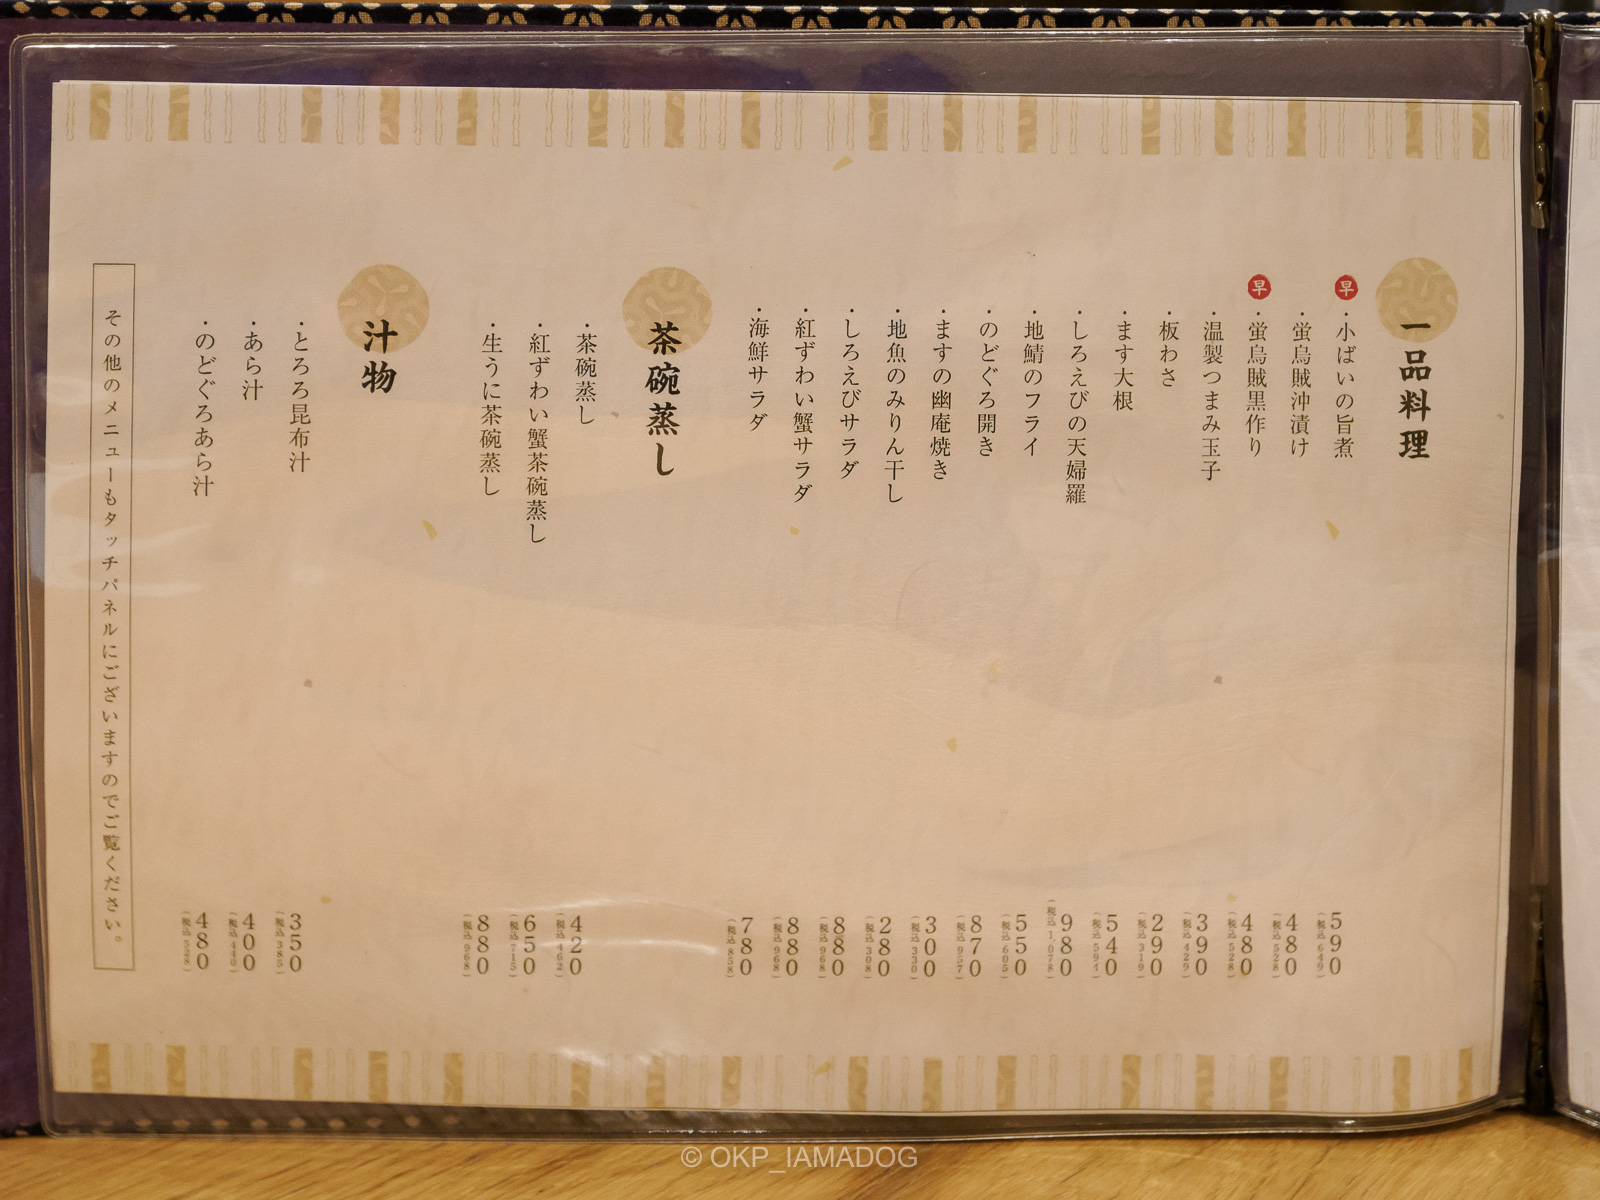 一品料理
早・小ばいの旨煮 590 (税込 649)
・螢烏賊沖漬け 480 (税込 528)
早・螢烏賊黒作り 480 (税込 528)
・温製つまみ玉子 390 (税込 429)
・板わさ 290 (税込 319)
・ます大根 540 (税込 594)
・しろえびの天婦羅 980 (税込 1,078)
・地鯖のフライ 550 (税込 605)
・のどぐろ開き 870 (税込 957)
・ますの幽庵焼き 300 (税込 330)
・地魚のみりん干し 280 (税込 308)
・しろえびサラダ 880 (税込 968)
・紅ずわい蟹サラダ 880 (税込 968)
・海鮮サラダ 780 (税込 858)
茶碗蒸し
・茶碗蒸し 420 (税込 462)
・紅ずわい蟹茶碗蒸し 650 (税込 715)
・生うに茶碗蒸し 880 (税込 968)
汁物
・とろろ昆布汁 350 (税込 385)
・あら汁 400 (税込 440)
・のどぐろあら汁 480 (税込 528)
その他のメニューもタッチパネルにございますのでご覧ください。
© OKP_IAMADOG